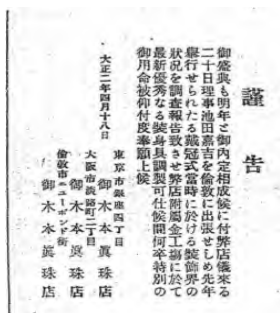 謹告
御盛典も明年と御内定相成候に付弊店儀來る
二十日理事池田嘉吉を倫敦に出張せしめ先年
擧行せられたる戴冠式當時に於ける裝飾界の
狀況を調査報吿致させ弊店附屬金工塲に於て
最新優秀なる裝身具調製可仕候間何卒特別の
御用命被仰付度奉願上候
大正二年四月十八日
東京市銀座四丁目
御木本眞珠店
大阪市淡路町二丁目
御木本眞珠店
倫敦市ニューボンド街
御木本眞珠店